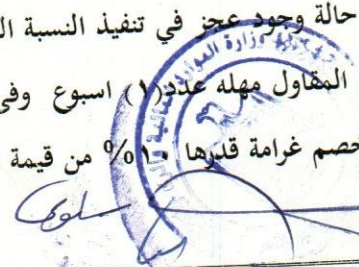 حالة وجود عجز في تنفيذ النسبة
المقاول مهله عدد (١) اسبوع وفى
خصم غرامة قدرها ١٠% من قيمة
وزارة الموارد المائية